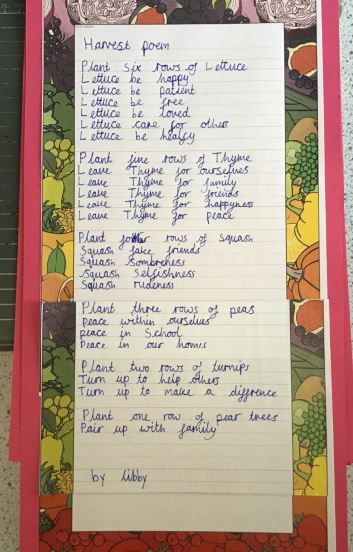 Harvest poem
Plant six rows of Lettuce
Lettuce be happy
Lettuce be patient
Lettuce be free
Lettuce be loved
Lettuce care for others
Lettuce be healfy
Plant five rows of Thyme
Leave Thyme for ourselves
Leave Thyme for family
Leave Thyme for friends
Leave Thyme for happyness
Leave Thyme for peace
Plant four rows of squash
Squash fake friends
Squash Sombreness
Squash Selfishness
Squash rudeness
Plant three rows of peas
Peace within ourselves
peace in School
Peace in our homes
Plant two rows of turnips
Turn up to help others
Turn up to make a diffrence
Plant one row of pear trees
Pair up with family
by libby